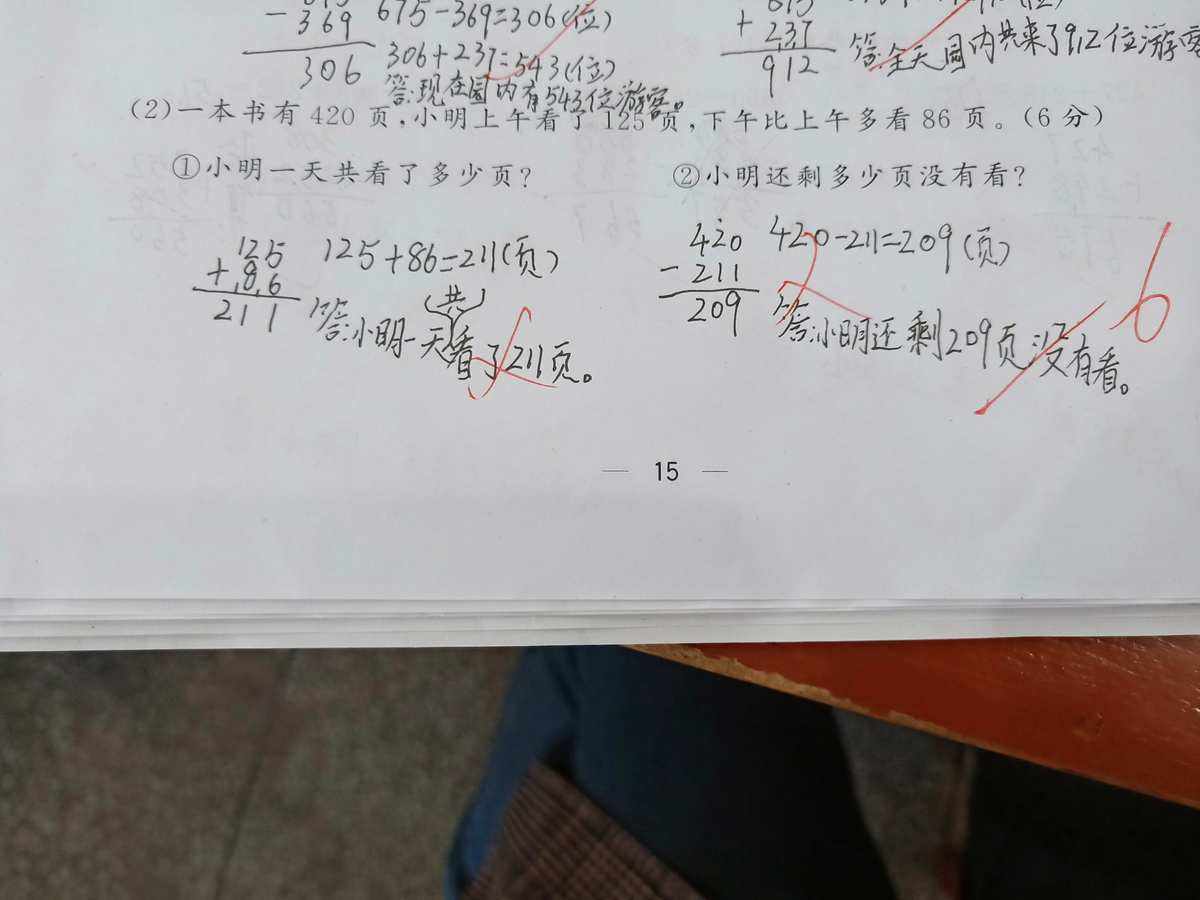 - 369 675-369=306(位)
306 306+237=543(位)
答:现在园内有543位游客。
+ 237
912 答:全天园内共来了912位游客
(2)一本书有 420 页,小明上午看了 125 页,下午比上午多看 86 页。(6 分)
①小明一天共看了多少页?
125 125+86=211(页)
+ 86
211 答:小明一天(共)看了211页。
②小明还剩多少页没有看?
420 420-211=209(页)
- 211
209 答:小明还剩209页没有看。
6
— 15 —